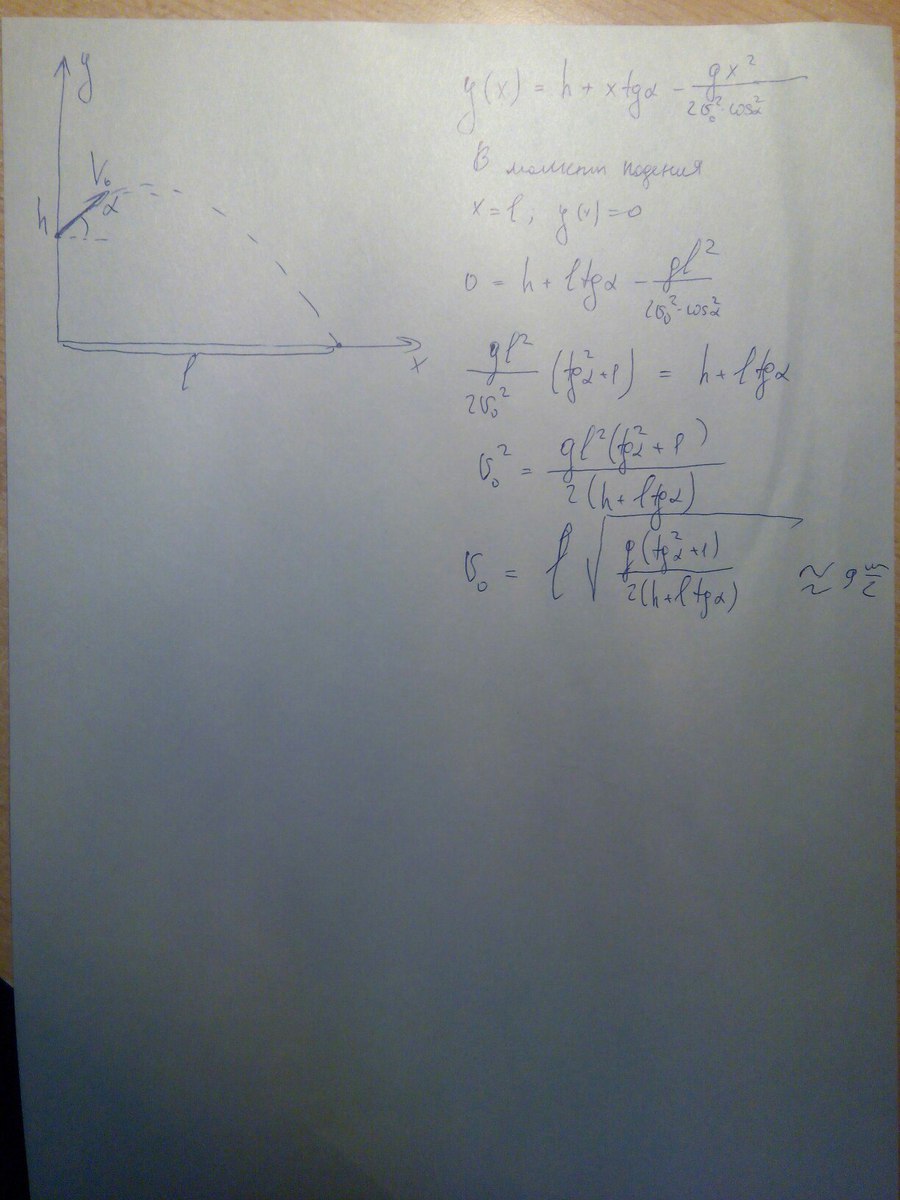 y
V₀
α
h
l
x
y(x) = h + x tgα - gx²/(2v₀²·cos²α)
В моменты подения
x = l; y(x) = 0
0 = h + l tgα - gl²/(2v₀²·cos²α)
gl²/(2v₀²) (tg²α+1) = h + l tgα
v₀² = gl²(tg²α+1)/(2(h+l tgα))
v₀ = l√(g(tg²α+1)/(2(h+l tgα))) ≈ 9 м/с